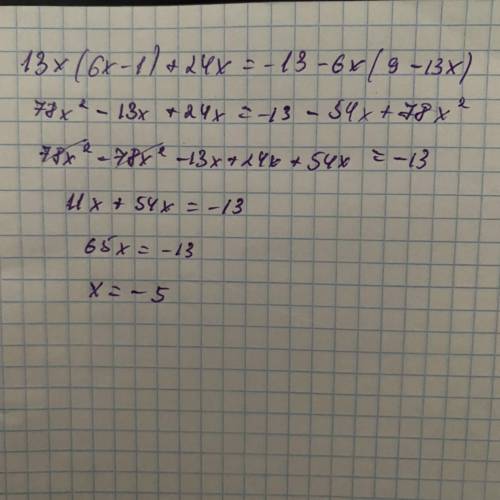 13x(6x-1)+24x=-13-6x(9-13x)
78x²-13x+24x=-13-54x+78x²
78x²-78x²-13x+24x+54x=-13
11x+54x=-13
65x=-13
x=-5